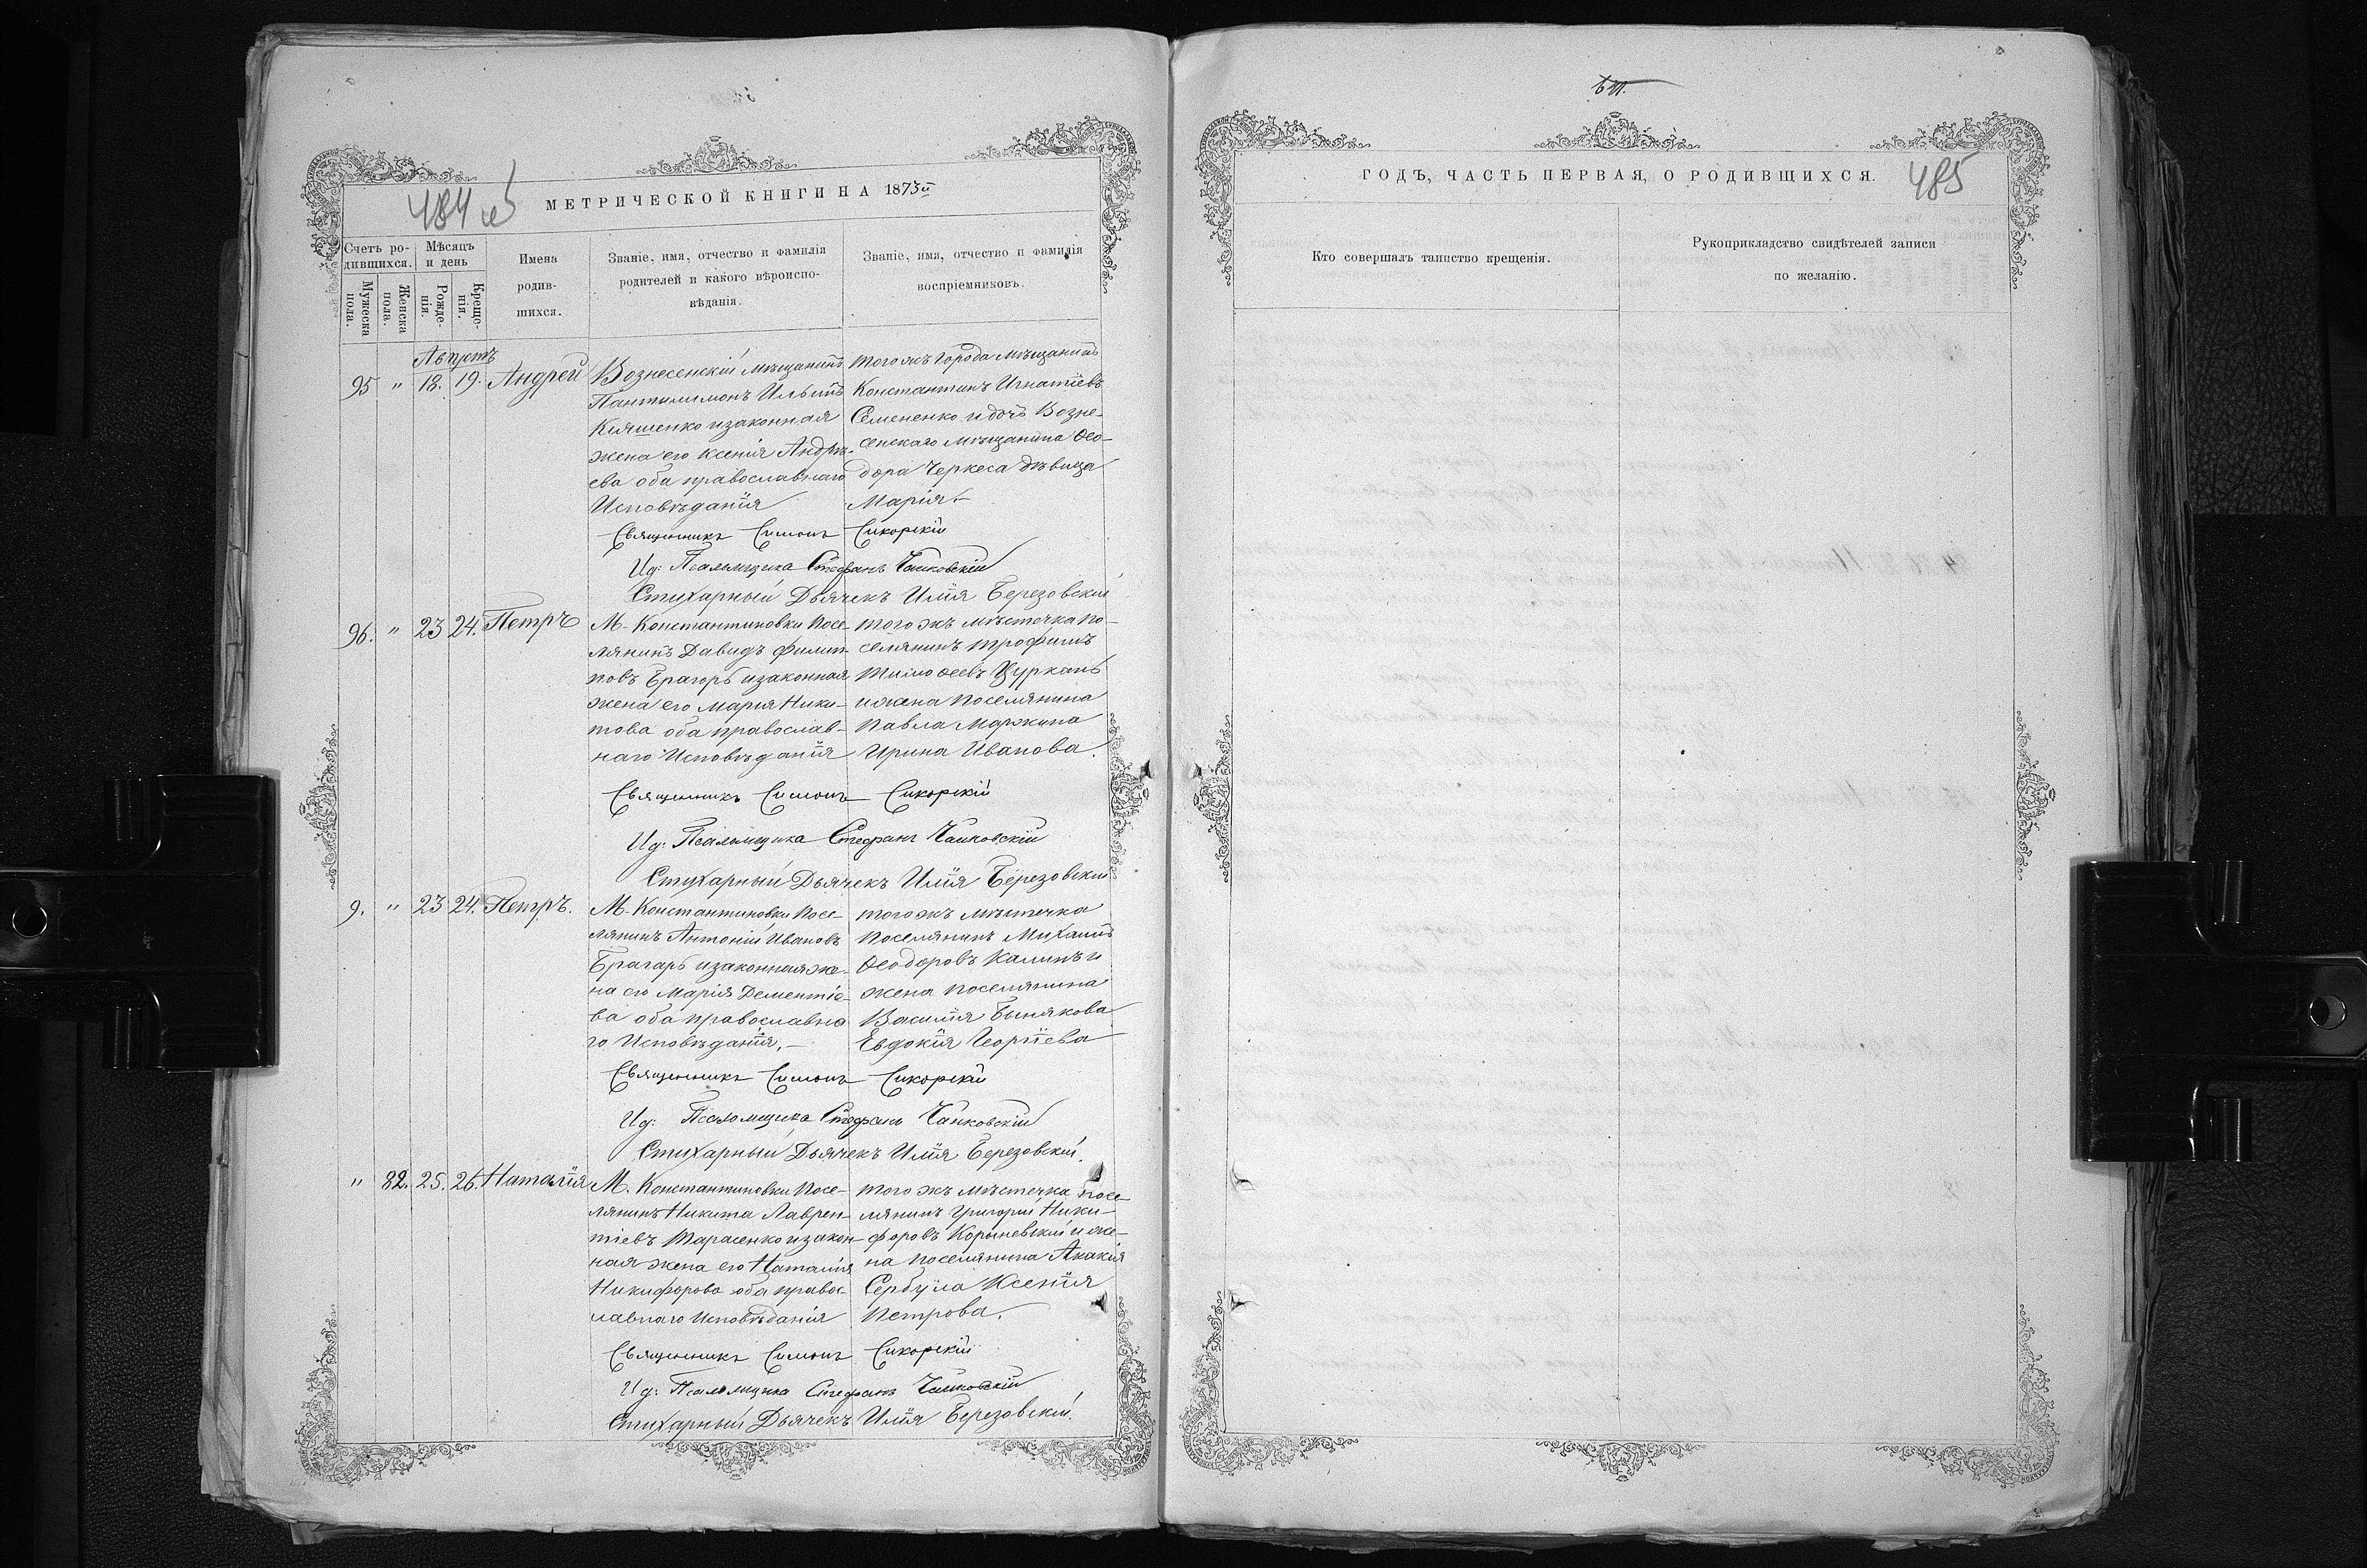 484 об
МЕТРИЧЕСКОЙ КНИГИ НА 1873й
Счетъ ро-
дившихся.
Мѣсяцъ
и день
Мужеска
пола.
Женска
пола.
Рожде-
нія.
Креще-
нія.
Имена
родив-
шихся.
Званіе, имя, отчество и фамилія
родителей и какого вѣроиспо-
вѣданія.
Званіе, имя, отчество и фамилія
воспріемниковъ.
95 " 18. 19. Андрей
Вознесенскій мѣщанинъ
Пантилимонъ Ильинъ
Кіяшенко изаконная
жена его Ксенія Андрѣ-
ева оба православнаго
Исповѣданія
тогожъ города мѣщанинъ
Константинъ Игнатіевъ
Семененко и дочь Возне-
сенскаго мѣщанина Ѳео-
дора Черкеса дѣвица
Марія.-
Священникъ Симонъ Сикорскій
Ид: Псаломщика Стефанъ Чайковскій
Стихарный Дьячекъ Илія Березовскій
96. " 23 24. Петръ
М. Константиновки посе-
лянинъ Давидъ Филип-
повъ Брагорь изаконная
жена его Марія Ники-
това оба православ-
наго Исповѣданія
тогожъ мѣстечка по-
селянинъ Трофимъ
Тимоѳеевъ Цурканъ
ижена поселянина
Павла Маржина
Ирина Иванова.
Священникъ Симонъ Сикорскій
Ид: Псаломщика Стефанъ Чайковскій
Стихарный Дьячекъ Илія Березовскій
9. " 23 24. Петръ.
М. Константиновки посе-
лянинъ Антоній Ивановъ
Брагарь изаконная же-
на его Марія Дементіе-
ва оба православна
го Исповѣданія.-
тогожъ мѣстечка
поселянинъ Михаилъ
Ѳеодоровъ Калинъ и
жена поселянина
Василія Бынякова
Евдокія Георгіева
Священникъ Симонъ Сикорскій
Ид: Псаломщика Стефанъ Чайковскій
Стихарный Дьячекъ Илія Березовскій.
" 82. 25. 26. Наталія
М. Константиновки посе-
лянинъ Никита Лаврен-
тіевъ Тарасенко изакон-
ная жена его Наталія
Никифорова оба правос-
лавнаго Исповѣданія
тогожъ мѣстечка посе
лянинъ Григорій Ники-
форовъ Корыневскій и же-
на поселянина Акакія
Сербула Ксенія
Петрова.
Священникъ Симонъ Сикорскій
Ид: Псаломщика Стефанъ Чайковскій
Стихарный Дьячекъ Илія Березовскій.
ГОДЪ, ЧАСТЬ ПЕРВАЯ, О РОДИВШИХСЯ.
485
Кто совершалъ таинство крещенія.
Рукоприкладство свидѣтелей записи
по желанію.